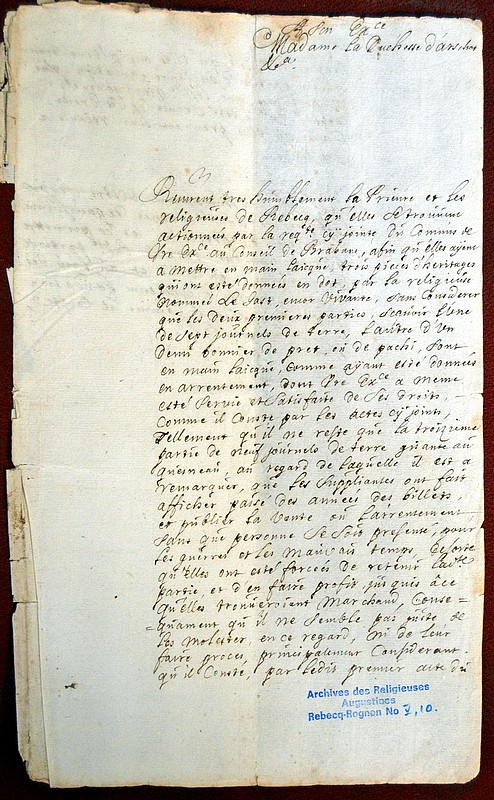 A Son Exce
Madame la Duchesse d'arschot
&a.
Remrent tres humblement la Prieure et les
religieuses de Rebecq, qu'elles se trouvent
actionnées par la reqte. cy jointe du Commis de
Vre Exce. au Conseil de Brabant, afin qu'elles ayent
a mettre en main laicque, trois pieces d'heritages
qui ont esté donnees en dot, par la religieuse
nommée Le Fort, encor vivante, sans Considerer
que les deux premieres parties, scavoir l'une
de sept journels de terre, l'autre d'un
demi bonnier de pret, ou de pachi, sont
en main laicque, comme ayant esté données
en arrentement, dont Vre Exce a meme
esté servie et satisfaite de ses droits,
Comme il Conste par les actes cy joints,
Tellement qu'il ne reste que la troizieme
partie de neuf journels de terre gisante au
quesneau, au regard de laquelle il est a
remarquer, que les suppliantes ont fait
afficher passé des années des billets,
et publier la vente ou l'arrentement
sans que personne se soit presenté, pour
les guerres et les mauvais temps, desorte
qu'elles ont esté forcées de retenir ladte
partie, et d'en faire profit, jusques à ce
qu'elles trouveroient Marchand, Conse=
=quament qu'il ne semble pas juste de
les molester, en ce regard, ni de leur
faire proces, principalement Considerant
qu'il Conste, par ledit premier acte du
Archives des Religieuses
Augustines
Rebecq-Rognon No V, 10.